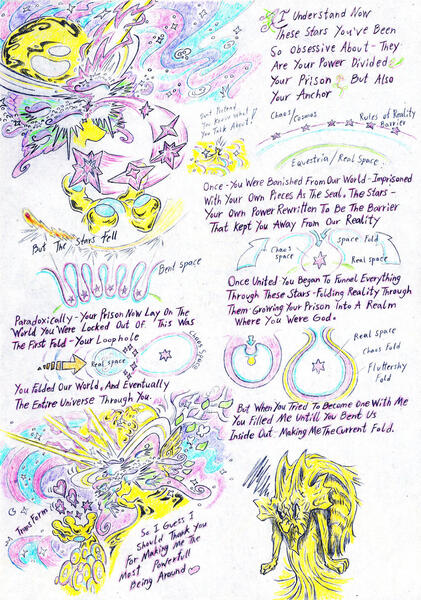 I Understand Now
These Stars You've Been
So Obsessive About - They
Are Your Power Divided
Your Prison But Also
Your Anchor
Dont Pretend
You Know What
You Talk About!
Chaos/
Cosmos
Rules of Reality
Barrier
Equestria/Real Space
Once - You Were Banished From Our World - Imprisoned
With Your Own Pieces As The Seal. The Stars -
Your Own Power Rewritten To Be The Barrier
That Kept You Away From Our Reality
But The Stars Fell
Bent space
Chaos
space
space Fold
Real space
Paradoxically - Your Prison Now Lay On The
World You Were Locked Out Of. This Was
The First Fold - Your Loophole
Once United You Began To Funnel Everything
Through These Stars - Folding Reality Through
Them - Growing Your Prison Into A Realm
Where You Were God.
Real space
Chaos Space
You Folded Our World, And Eventually
The Entire Universe Through You.
Real space
Chaos Fold
Fluttershy
Fold
But When You Tried To Become One With Me
You Filled Me Untill You Bent Us
Inside Out - Making Me The Current Fold.
Transform!
So I Guess I
Should Thank You
For Making Me The
Most Powerfull
Being Around